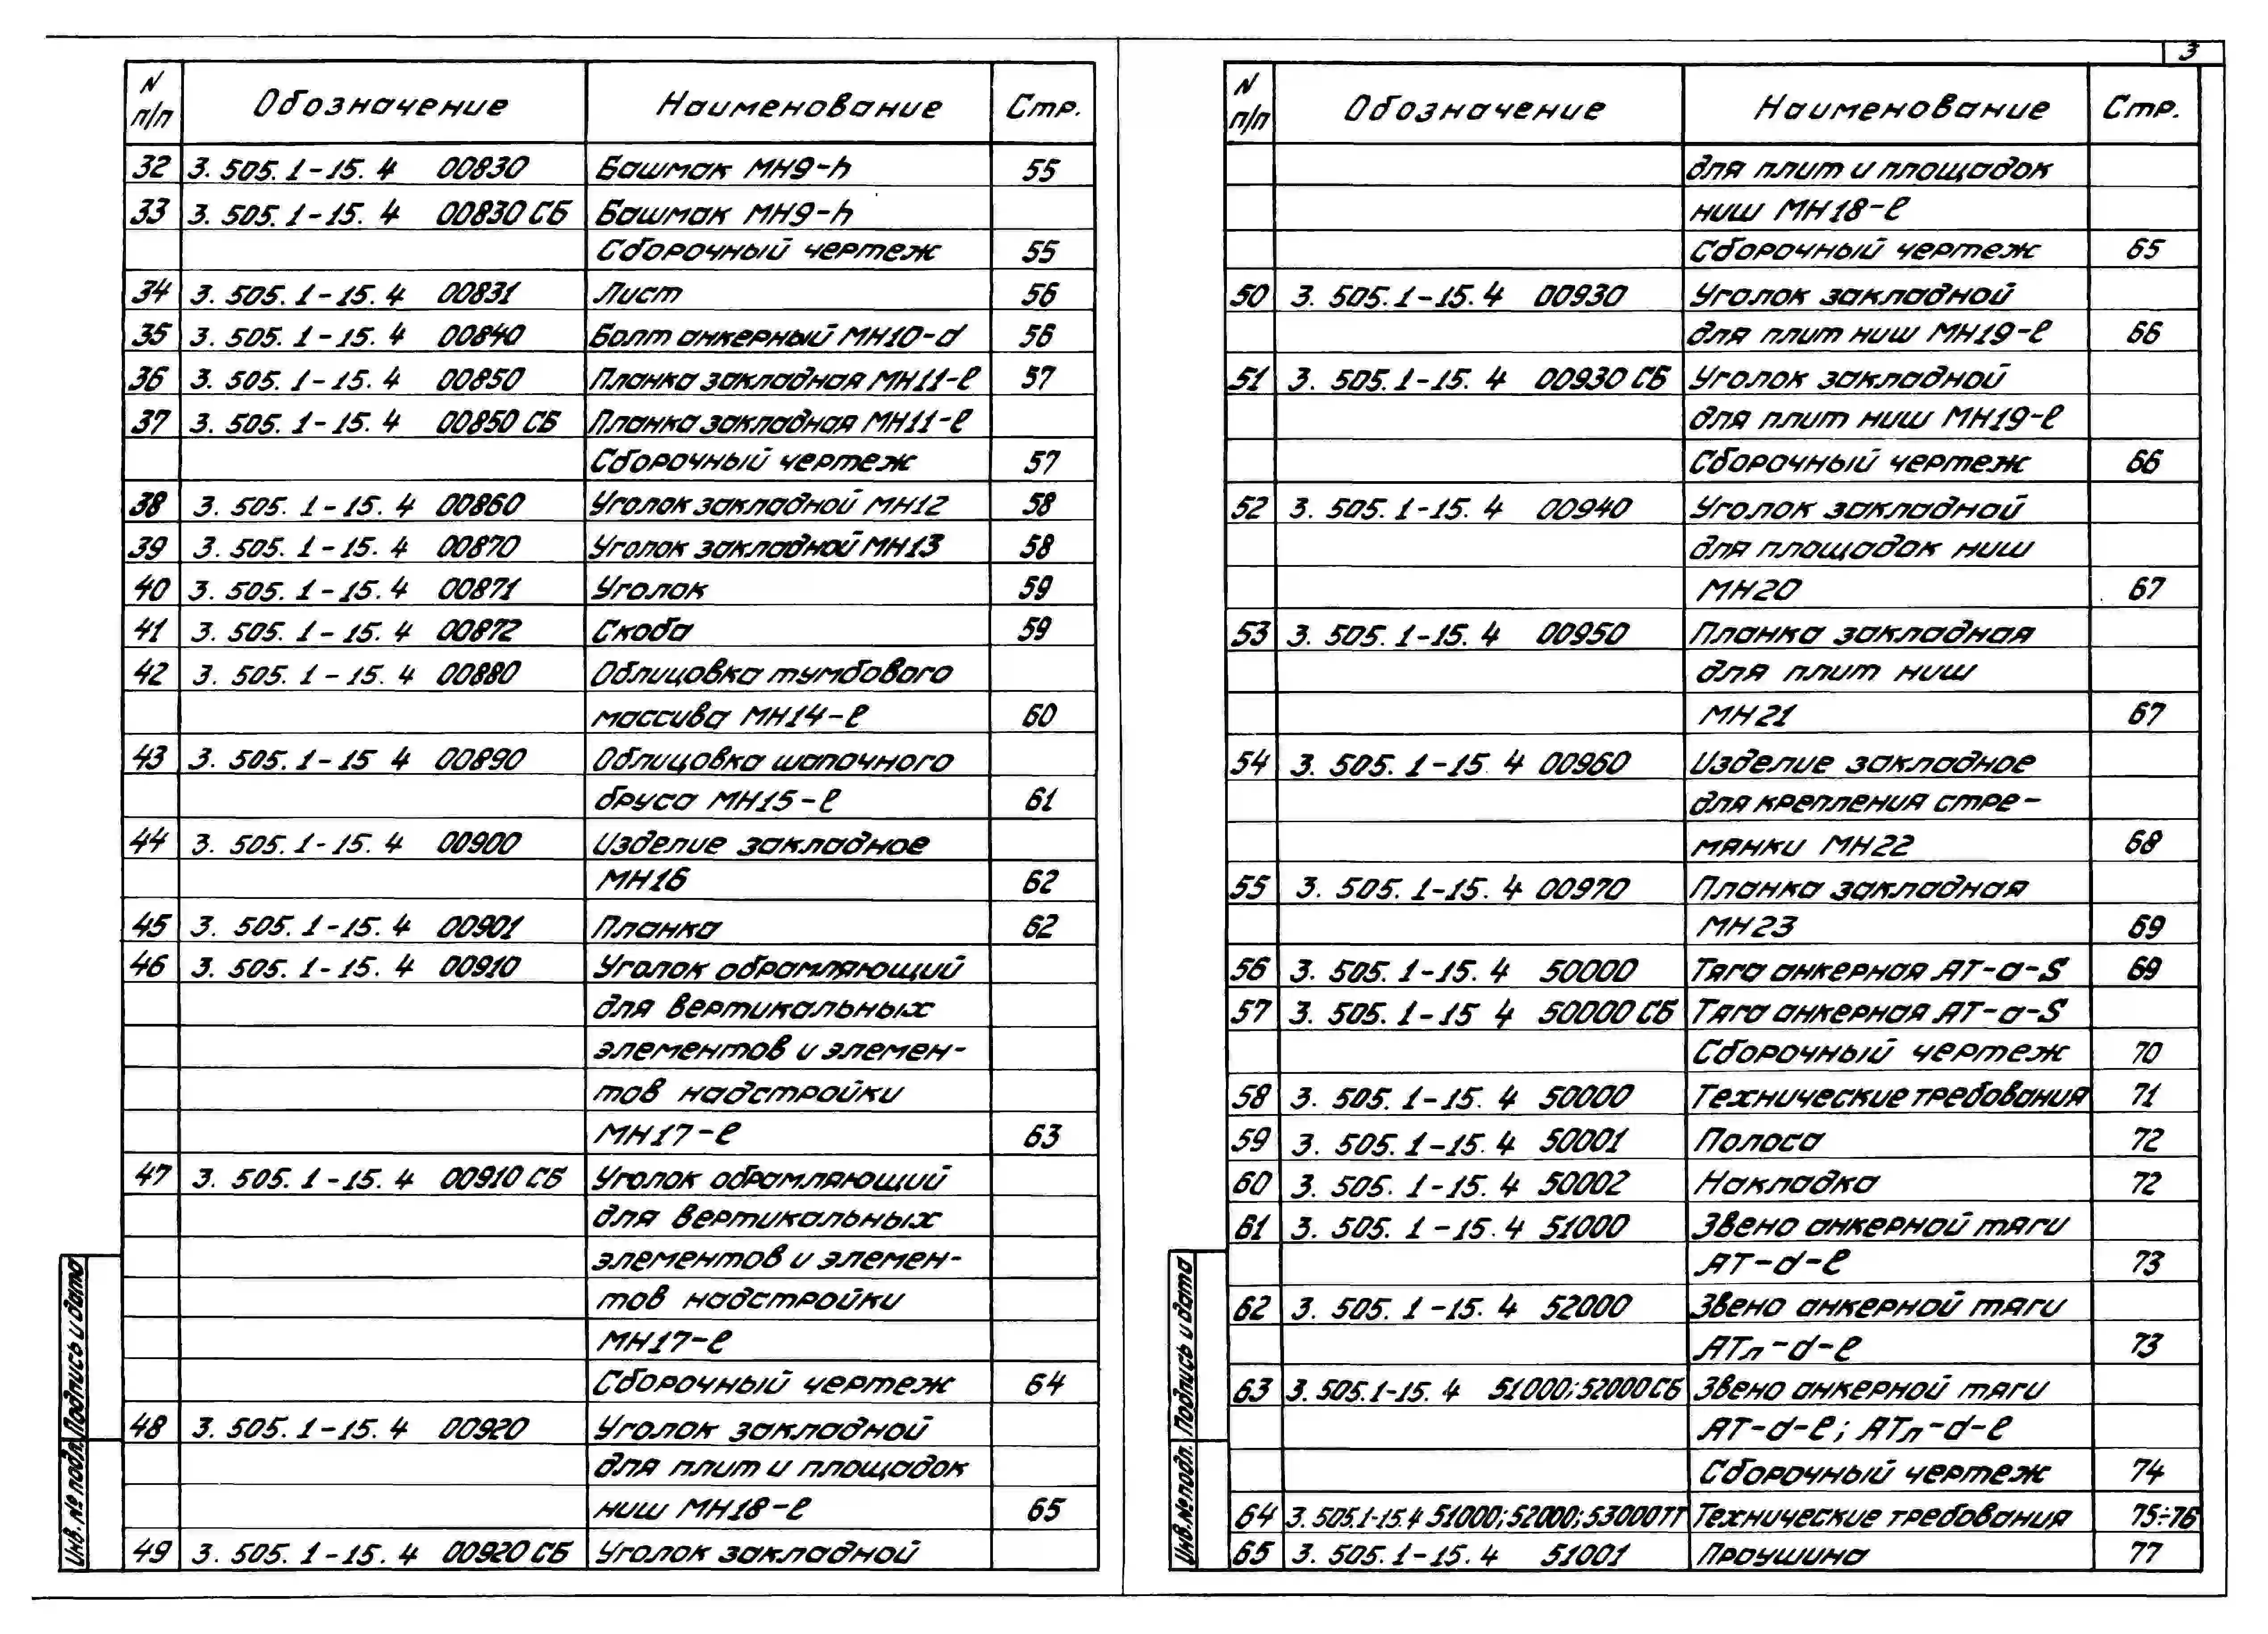 3
N п/п Обозначение Наименование Стр.
32 3.505.1-15.4 00830 Башмак МН9-h 55
33 3.505.1-15.4 00830 СБ Башмак МН9-h
Сборочный чертеж 55
34 3.505.1-15.4 00831 Лист 56
35 3.505.1-15.4 00840 Болт анкерный МН10-d 56
36 3.505.1-15.4 00850 Планка закладная МН11-ℓ 57
37 3.505.1-15.4 00850 СБ Планка закладная МН11-ℓ
Сборочный чертеж 57
38 3.505.1-15.4 00860 Уголок закладной МН12 58
39 3.505.1-15.4 00870 Уголок закладной МН13 58
40 3.505.1-15.4 00871 Уголок 59
41 3.505.1-15.4 00872 Скоба 59
42 3.505.1-15.4 00880 Облицовка тумбового
массива МН14-ℓ 60
43 3.505.1-15 4 00890 Облицовка шапочного
бруса МН15-ℓ 61
44 3.505.1-15.4 00900 Изделие закладное
МН16 62
45 3.505.1-15.4 00901 Планка 62
46 3.505.1-15.4 00910 Уголок обрамляющий
для вертикальных
элементов и элемен-
тов надстройки
МН17-ℓ 63
47 3.505.1-15.4 00910 СБ Уголок обрамляющий
для вертикальных
элементов и элемен-
тов надстройки
МН17-ℓ
Сборочный чертеж 64
48 3.505.1-15.4 00920 Уголок закладной
для плит и площадок
ниш МН18-ℓ 65
49 3.505.1-15.4 00920 СБ Уголок закладной
Инв.№ подл. Подпись и дата
N п/п Обозначение Наименование Стр.
для плит и площадок
ниш МН18-ℓ
Сборочный чертеж 65
50 3.505.1-15.4 00930 Уголок закладной
для плит ниш МН19-ℓ 66
51 3.505.1-15.4 00930 СБ Уголок закладной
для плит ниш МН19-ℓ
Сборочный чертеж 66
52 3.505.1-15.4 00940 Уголок закладной
для площадок ниш
МН20 67
53 3.505.1-15.4 00950 Планка закладная
для плит ниш
МН21 67
54 3.505.1-15.4 00960 Изделие закладное
для крепления стре-
мянки МН22 68
55 3.505.1-15.4 00970 Планка закладная
МН23 69
56 3.505.1-15.4 50000 Тяга анкерная АТ-а-S 69
57 3.505.1-15 4 50000 СБ Тяга анкерная АТ-а-S
Сборочный чертеж 70
58 3.505.1-15.4 50000 Технические требования 71
59 3.505.1-15.4 50001 Полоса 72
60 3.505.1-15.4 50002 Накладка 72
61 3.505.1-15.4 51000 Звено анкерной тяги
АТ-d-ℓ 73
62 3.505.1-15.4 52000 Звено анкерной тяги
АТл-d-ℓ 73
63 3.505.1-15.4 51000;52000 СБ Звено анкерной тяги
АТ-d-ℓ; АТл-d-ℓ
Сборочный чертеж 74
64 3.505.1-15.4 51000;52000;53000ТТ Технические требования 75÷76
65 3.505.1-15.4 51001 Проушина 77
Инв.№ подл. Подпись и дата